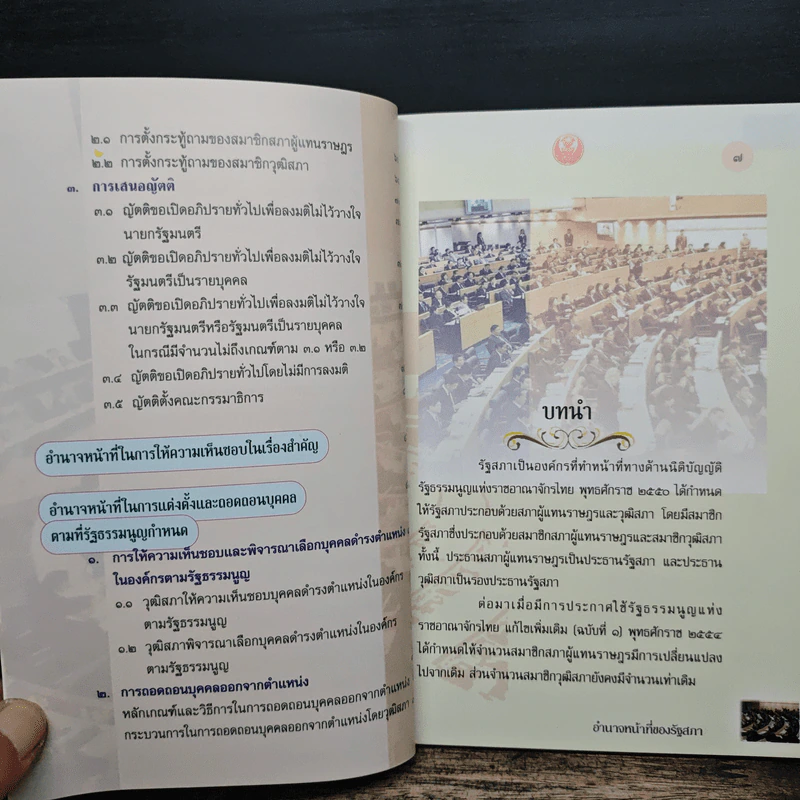 ๒.๑ การตั้งกระทู้ถามของสมาชิกสภาผู้แทนราษฎร
๒.๒ การตั้งกระทู้ถามของสมาชิกวุฒิสภา
๓. การเสนอญัตติ
๓.๑ ญัตติขอเปิดอภิปรายทั่วไปเพื่อลงมติไม่ไว้วางใจ
นายกรัฐมนตรี
๓.๒ ญัตติขอเปิดอภิปรายทั่วไปเพื่อลงมติไม่ไว้วางใจ
รัฐมนตรีเป็นรายบุคคล
๓.๓ ญัตติขอเปิดอภิปรายทั่วไปเพื่อลงมติไม่ไว้วางใจ
นายกรัฐมนตรีหรือรัฐมนตรีเป็นรายบุคคล
ในกรณีมีจำนวนไม่ถึงเกณฑ์ตาม ๓.๑ หรือ ๓.๒
๓.๔ ญัตติขอเปิดอภิปรายทั่วไปโดยไม่มีการลงมติ
๓.๕ ญัตติตั้งคณะกรรมาธิการ
อำนาจหน้าที่ในการให้ความเห็นชอบในเรื่องสำคัญ
อำนาจหน้าที่ในการแต่งตั้งและถอดถอนบุคคล
ตามที่รัฐธรรมนูญกำหนด
๑. การให้ความเห็นชอบและพิจารณาเลือกบุคคลดำรงตำแหน่ง
ในองค์กรตามรัฐธรรมนูญ
๑.๑ วุฒิสภาให้ความเห็นชอบบุคคลดำรงตำแหน่งในองค์กร
ตามรัฐธรรมนูญ
๑.๒ วุฒิสภาพิจารณาเลือกบุคคลดำรงตำแหน่งในองค์กร
ตามรัฐธรรมนูญ
๒. การถอดถอนบุคคลออกจากตำแหน่ง
หลักเกณฑ์และวิธีการในการถอดถอนบุคคลออกจากตำแหน่ง
กระบวนการในการถอดถอนบุคคลออกจากตำแหน่งโดยวุฒิสภา
๗
บทนำ
รัฐสภาเป็นองค์กรที่ทำหน้าที่ทางด้านนิติบัญญัติ
รัฐธรรมนูญแห่งราชอาณาจักรไทย พุทธศักราช ๒๕๕๐ ได้กำหนด
ให้รัฐสภาประกอบด้วยสภาผู้แทนราษฎรและวุฒิสภา โดยมีสมาชิก
รัฐสภาซึ่งประกอบด้วยสมาชิกสภาผู้แทนราษฎรและสมาชิกวุฒิสภา
ทั้งนี้ ประธานสภาผู้แทนราษฎรเป็นประธานรัฐสภา และประธาน
วุฒิสภาเป็นรองประธานรัฐสภา
ต่อมาเมื่อมีการประกาศใช้รัฐธรรมนูญแห่ง
ราชอาณาจักรไทย แก้ไขเพิ่มเติม (ฉบับที่ ๑) พุทธศักราช ๒๕๕๔
ได้กำหนดให้จำนวนสมาชิกสภาผู้แทนราษฎรมีการเปลี่ยนแปลง
ไปจากเดิม ส่วนจำนวนสมาชิกวุฒิสภายังคงมีจำนวนเท่าเดิม
อำนาจหน้าที่ของรัฐสภา